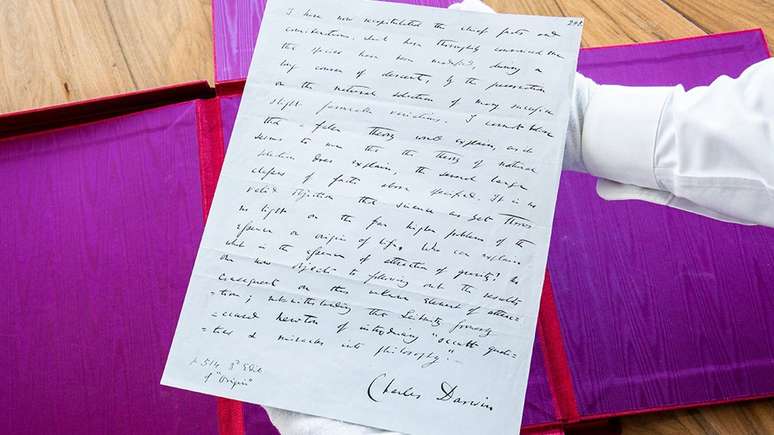 I have now recapitulated the chief facts and
considerations, which have thoroughly convinced me
that species have been modified, during a
long course of descent, by the preservation
or the natural selection of many successive
slight favourable variations. I cannot believe
that a false theory would explain, as it
seems to me that the theory of natural
selection does explain, the several large
classes of facts above specified. It is no
valid objection that science as yet throws
no light on the far higher problem of the
essence or origin of life. Who can explain
what is the essence of attraction of gravity? No
one now objects to following out the results
consequent on this unknown element of attrac-
=tion; notwithstanding that Leibnitz formerly
accused Newton of introducing "occult quali-
=ties & miracles into philosophy".—
p 514 3d Edit
of "Origin"
Charles Darwin